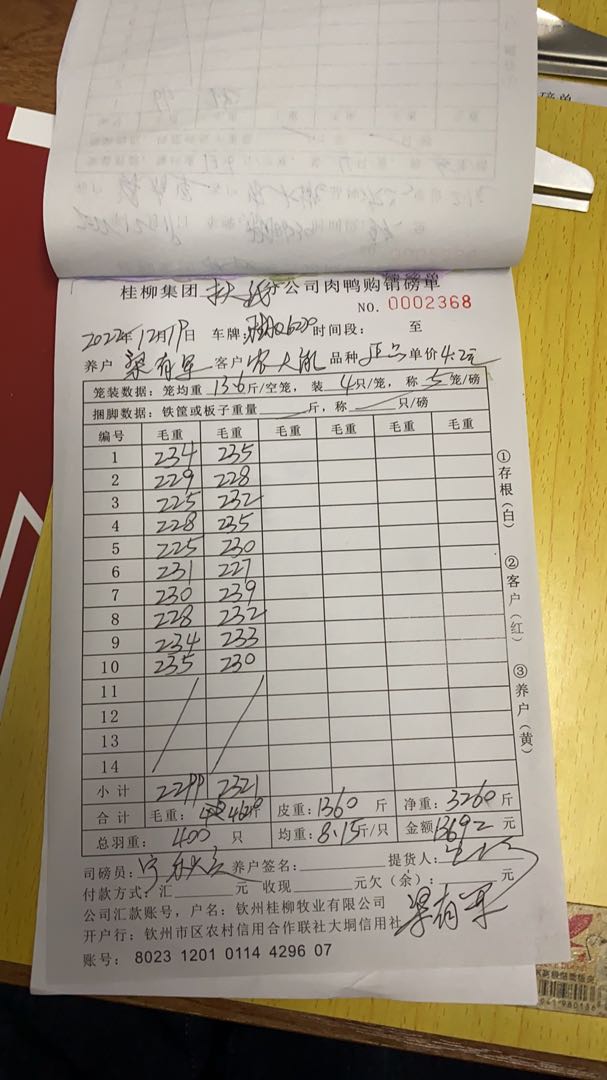 桂柳集团 公司肉鸭购销磅单
NO. 0002368
2022年12月19日 车牌: 时间段: 至
养户 梁有军 客户 品种 单价4.2元
笼装数据:笼均重 13.6斤/空笼,装 4只/笼,称 5笼/磅
捆脚数据:铁筐或板子重量 斤,称 只/磅
编号 毛重 毛重 毛重 毛重 毛重 毛重
1 234 235
2 229 228
3 225 232
4 228 235
5 225 230
6 231 227
7 230 239
8 228 232
9 234 233
10 235 230
11
12
13
14
小计 2299 2321
合计 毛重: 4620斤 皮重:1360 斤 净重:3260斤
总羽重: 400 只 均重:8.15斤/只 金额13692元
司磅员: 养户签名: 提货人:
付款方式:汇 元 收现 元欠(余): 元
公司汇款账号,户名:钦州桂柳牧业有限公司
梁有军
开户行:钦州市区农村信用合作联社大垌信用社
账号: 8023 1201 0114 4296 07
①存根(白)
②客户(红)
③养户(黄)